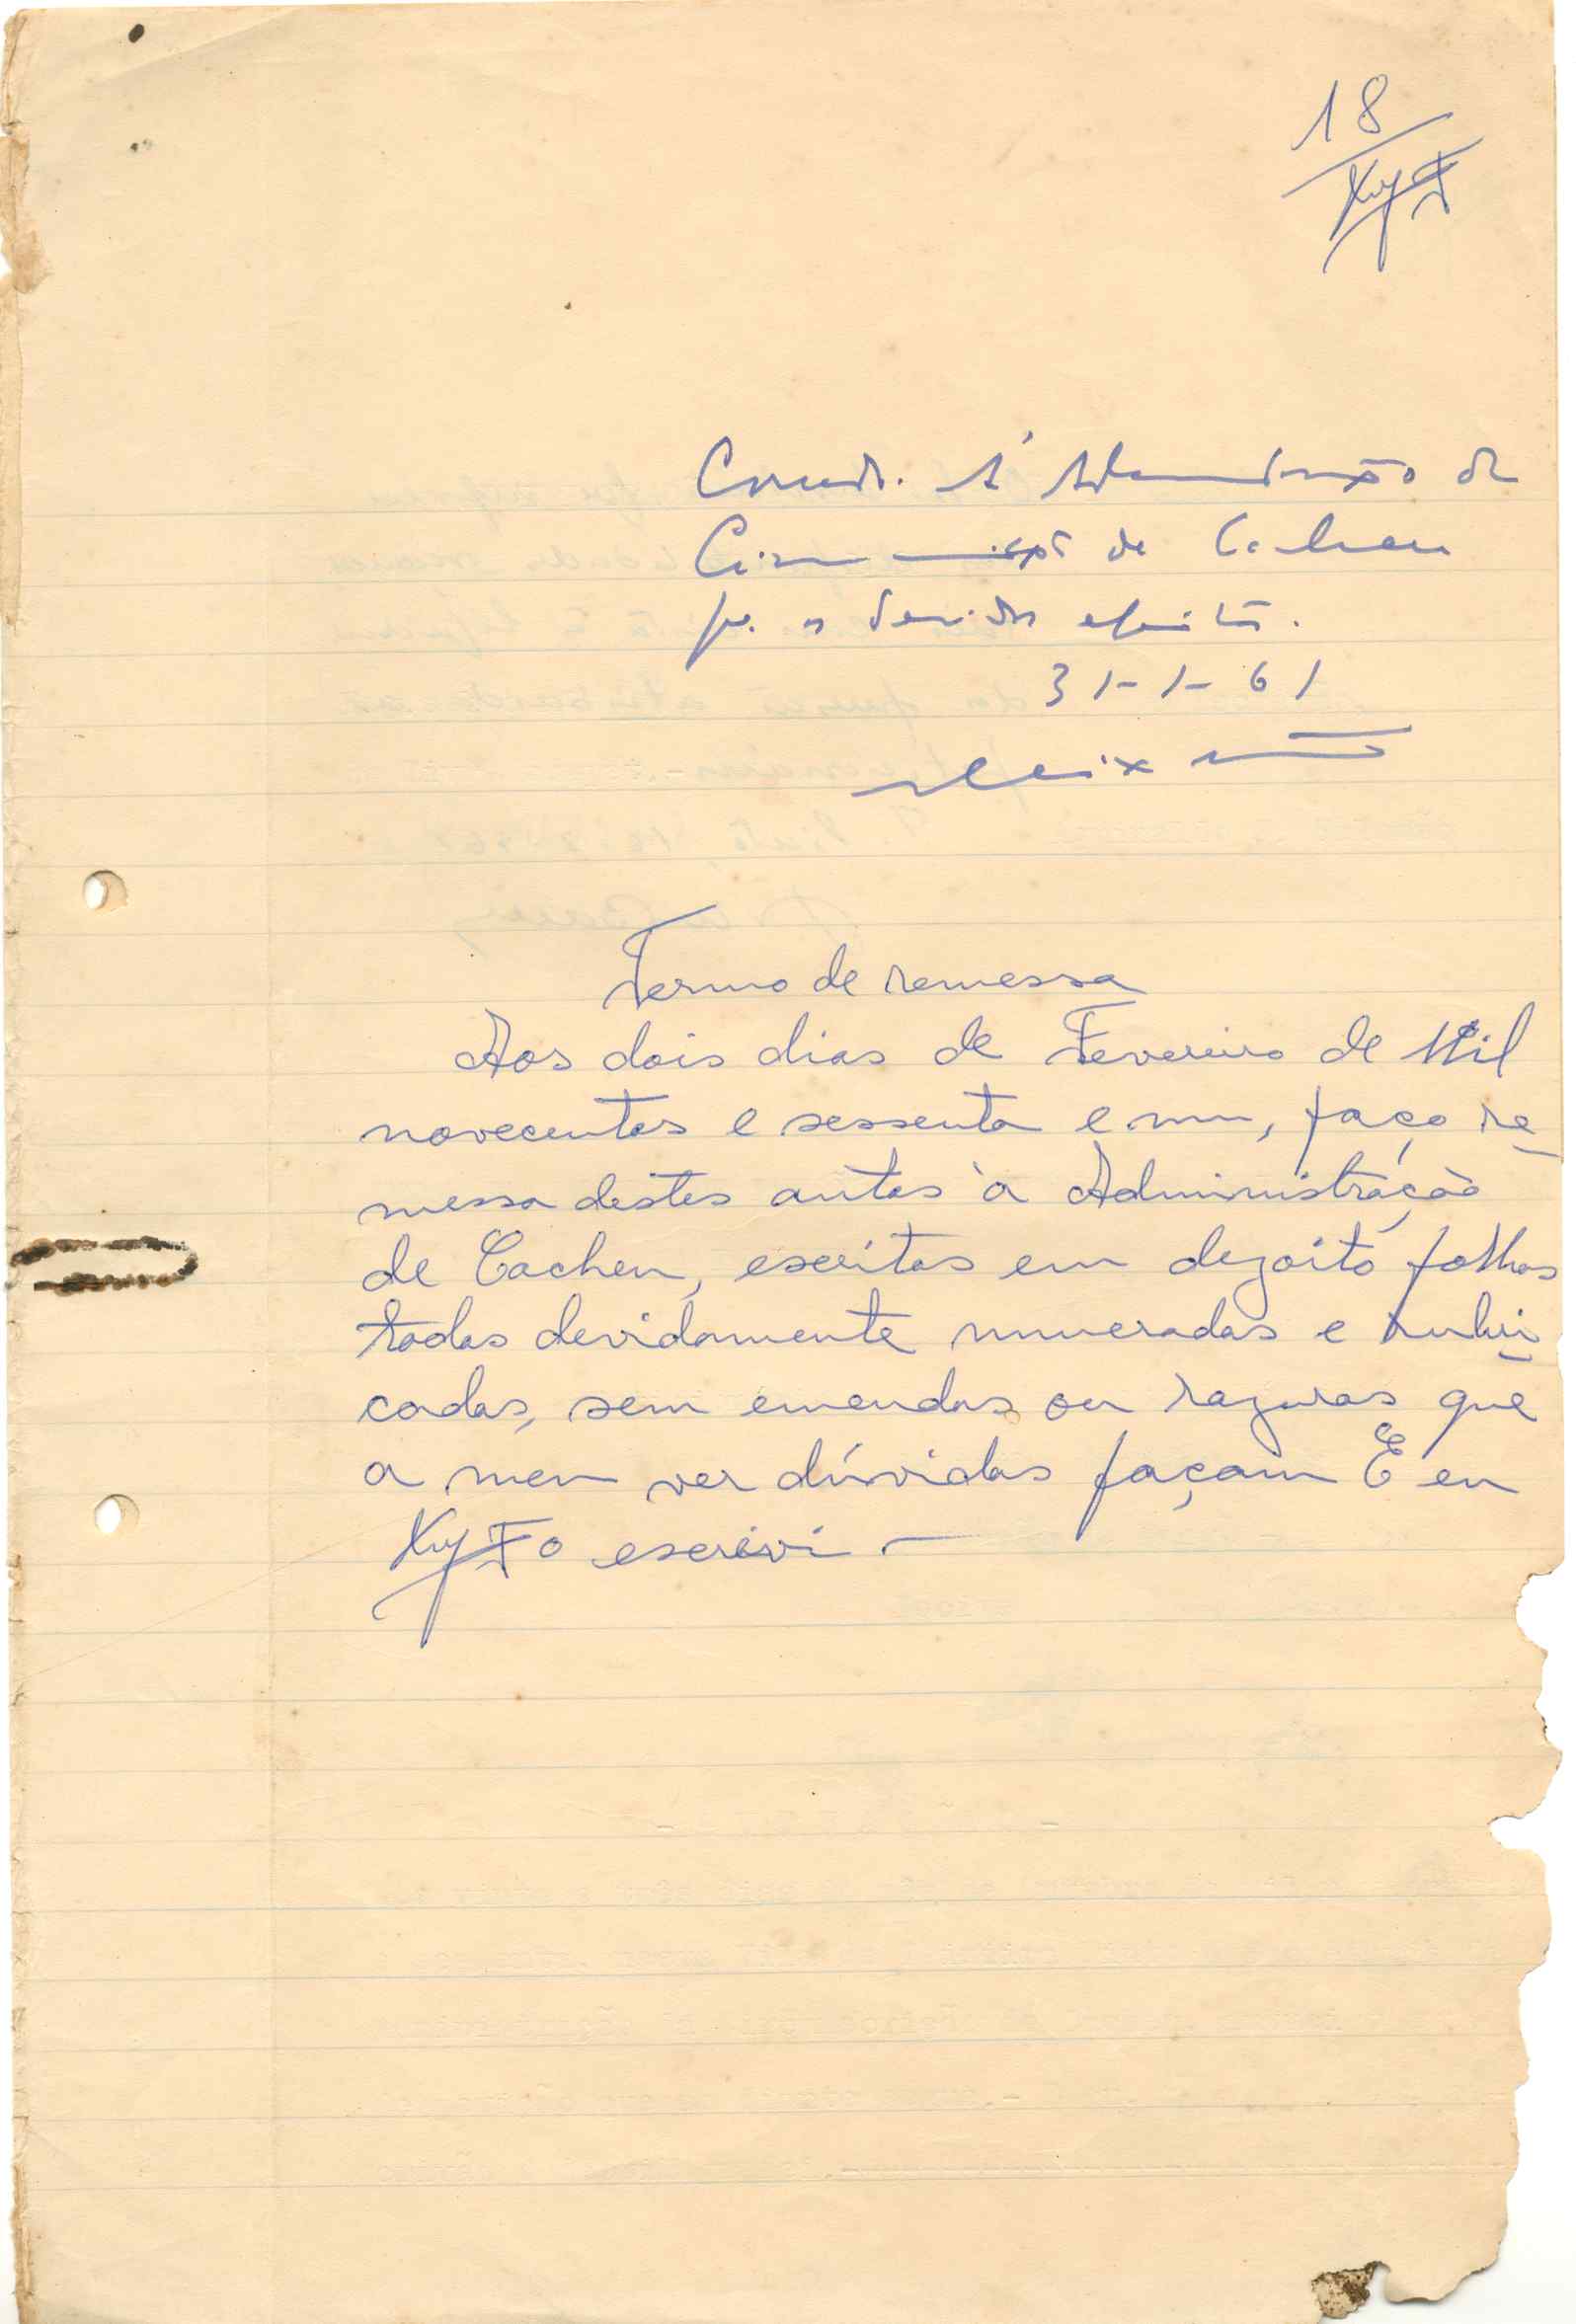 18
à Administração de
Circunscrição de Cacheu
pª os devidos efeitos.
31-1-61
Termo de remessa
Aos dois dias de Fevereiro de Mil
novecentos e sessenta e um, faço re-
messa destes autos à Administração
de Cacheu, escritos em dezoito folhas
todas devidamente numeradas e rubri-
cadas, sem emendas ou razuras que
a meu ver dúvidas façam E eu
o escrevi —